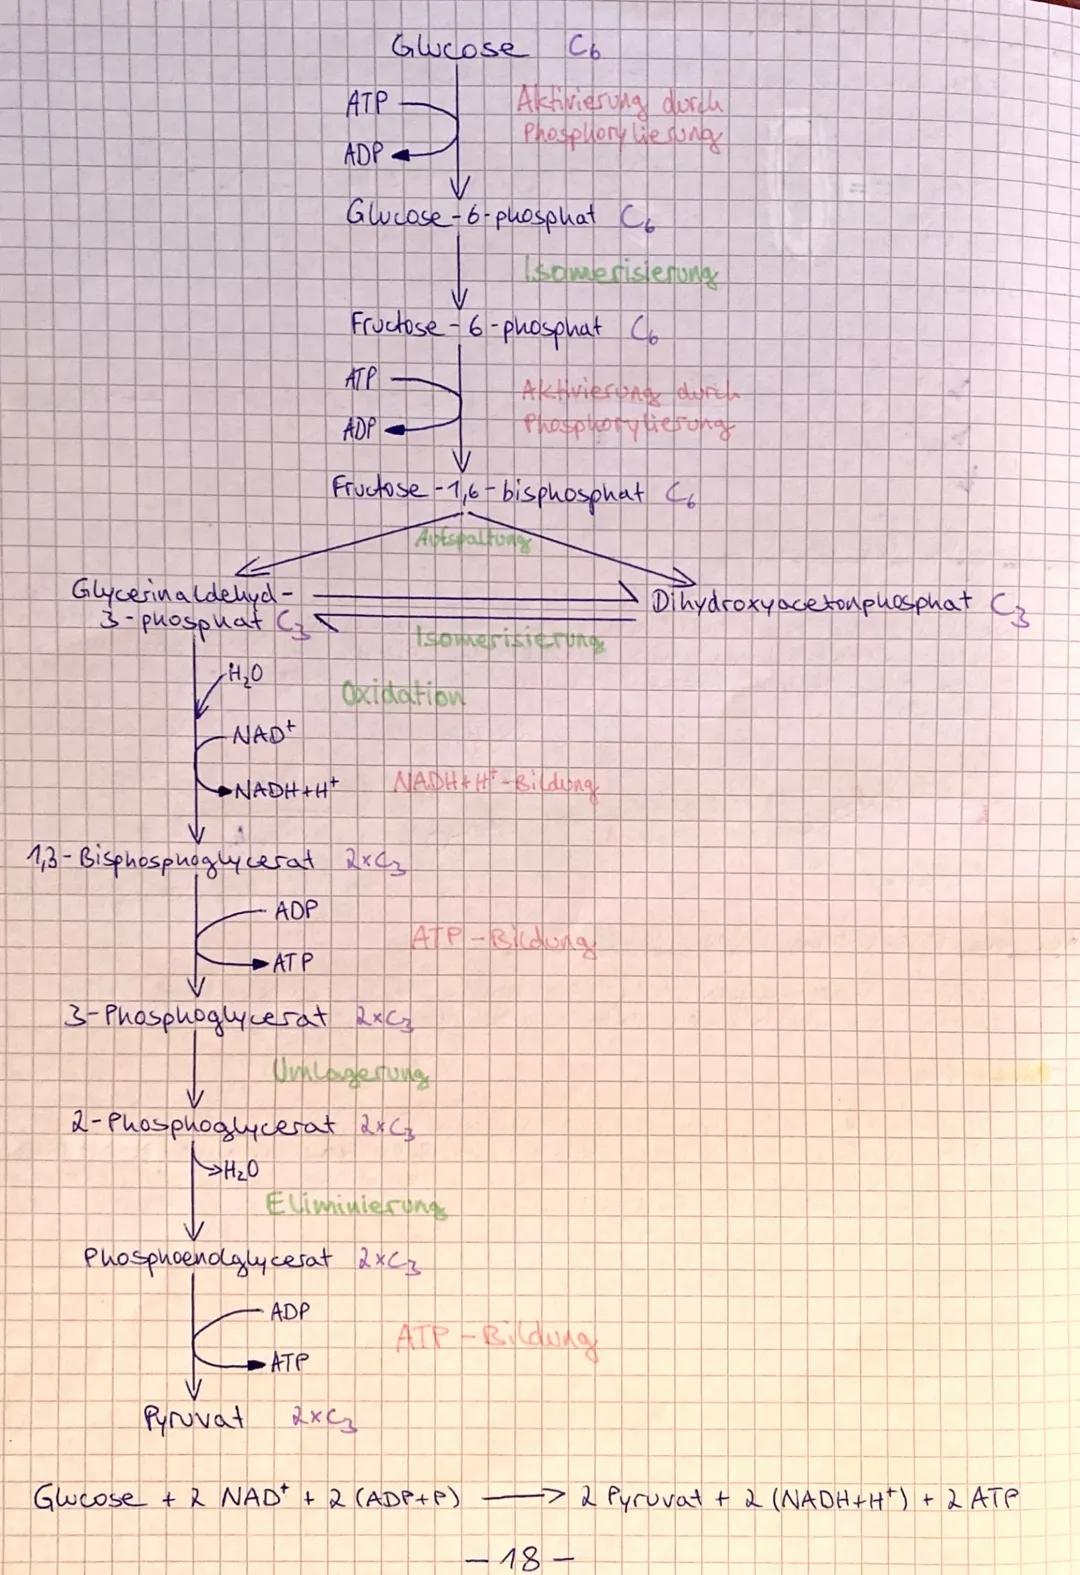 Glucose C₆
ATP
Aktivierung durch
Phosphorylierung
ADP
Glucose-6-phosphat C₆
Isomerisierung
Fructose-6-phosphat C₆
ATP
Aktivierung durch
Phosphorylierung
ADP
Fructose-1,6-bisphosphat C₆
Aufspaltung
Glycerinaldehyd-
3-phosphat C₃
Dihydroxyacetonphosphat C₃
Isomerisierung
H₂O
Oxidation
NAD⁺
NADH+H⁺
NADH+H⁺-Bildung
1,3-Bisphosphoglycerat 2×C₃
ADP
ATP-Bildung
ATP
3-Phosphoglycerat 2×C₃
Umlagerung
2-Phosphoglycerat 2×C₃
H₂O
Eliminierung
Phosphoenolglycerat 2×C₃
ADP
ATP-Bildung
ATP
Pyruvat 2×C₃
Glucose + 2 NAD⁺ + 2 (ADP+P) → 2 Pyruvat + 2 (NADH+H⁺) + 2 ATP
-18-